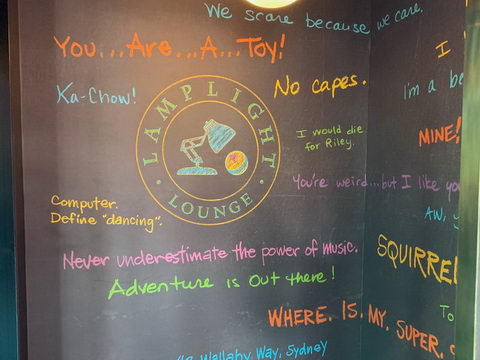 We scare because we care.
You...Are...A...Toy!
I
Ka-Chow!
No capes.
I'm a
LAMPLIGHT
LOUNGE
I would die
for Riley.
MINE!
You're weird...but I like
Computer.
Define "dancing".
AW,
Never underestimate the power of music.
SQUIRREL
Adventure is Out there!
WHERE. IS. MY. SUPER.
To
Wallaby Way, Sydney